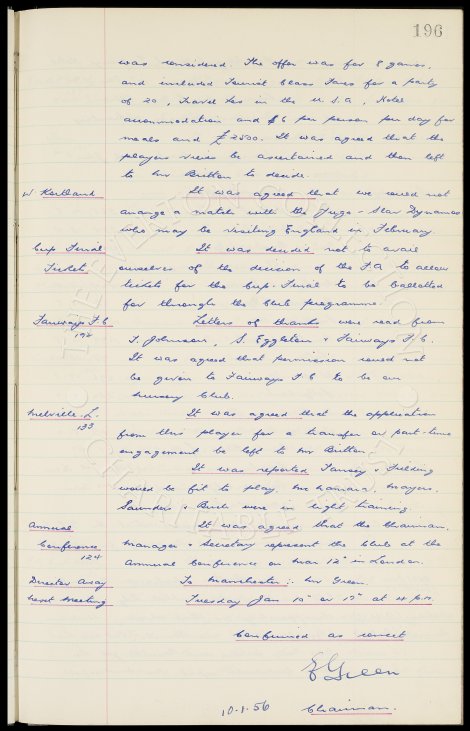 196
was considered The offer was for 8 games,
and included Tourist Class Fares for a party
of 20, Travel Exs in the U.S.A, Hotel
accommodation and $6 per person per day for
meals and £2500. It was agreed that the
players views be ascertained and then left
to Mr Britton to decide.
W. Kartland It was agreed that we could not
arrange a match with the Yugo-Slav Dynamos
who may be visiting England in February.
Cup Final It was decided not to avail
Tickets ourselves of the decision of the FA to allow
tickets for the Cup-Final to be balloted
for through the Club programme.
Fairways F.C Letters of thanks were read from
192 T. Johnson, S. Eggleston & Fairways F/C.
It was agreed that permission could not
be given to Fairways F.C to be our
nursery Club.
Melville. L. It was agreed that the application
133 from this player for a transfer or part-time
engagement be left to Mr Britton
It was reported Tansey & Fielding
would be fit to play. McNamara, Mayers,
Saunders & Birch were in light training.
Annual It was agreed that the Chairman,
Conference Manager & Secretary represent the Club at the
124 Annual Conference on Mar 12th in London.
Director Away To Manchester :- Mr Green.
Next Meeting Tuesday Jan 10th or 17th at 4 p.m.
Confirmed as correct
E Green
10.1.56 Chairman.
THE EVERTON COLLECTION
CHARITABLE TRUST